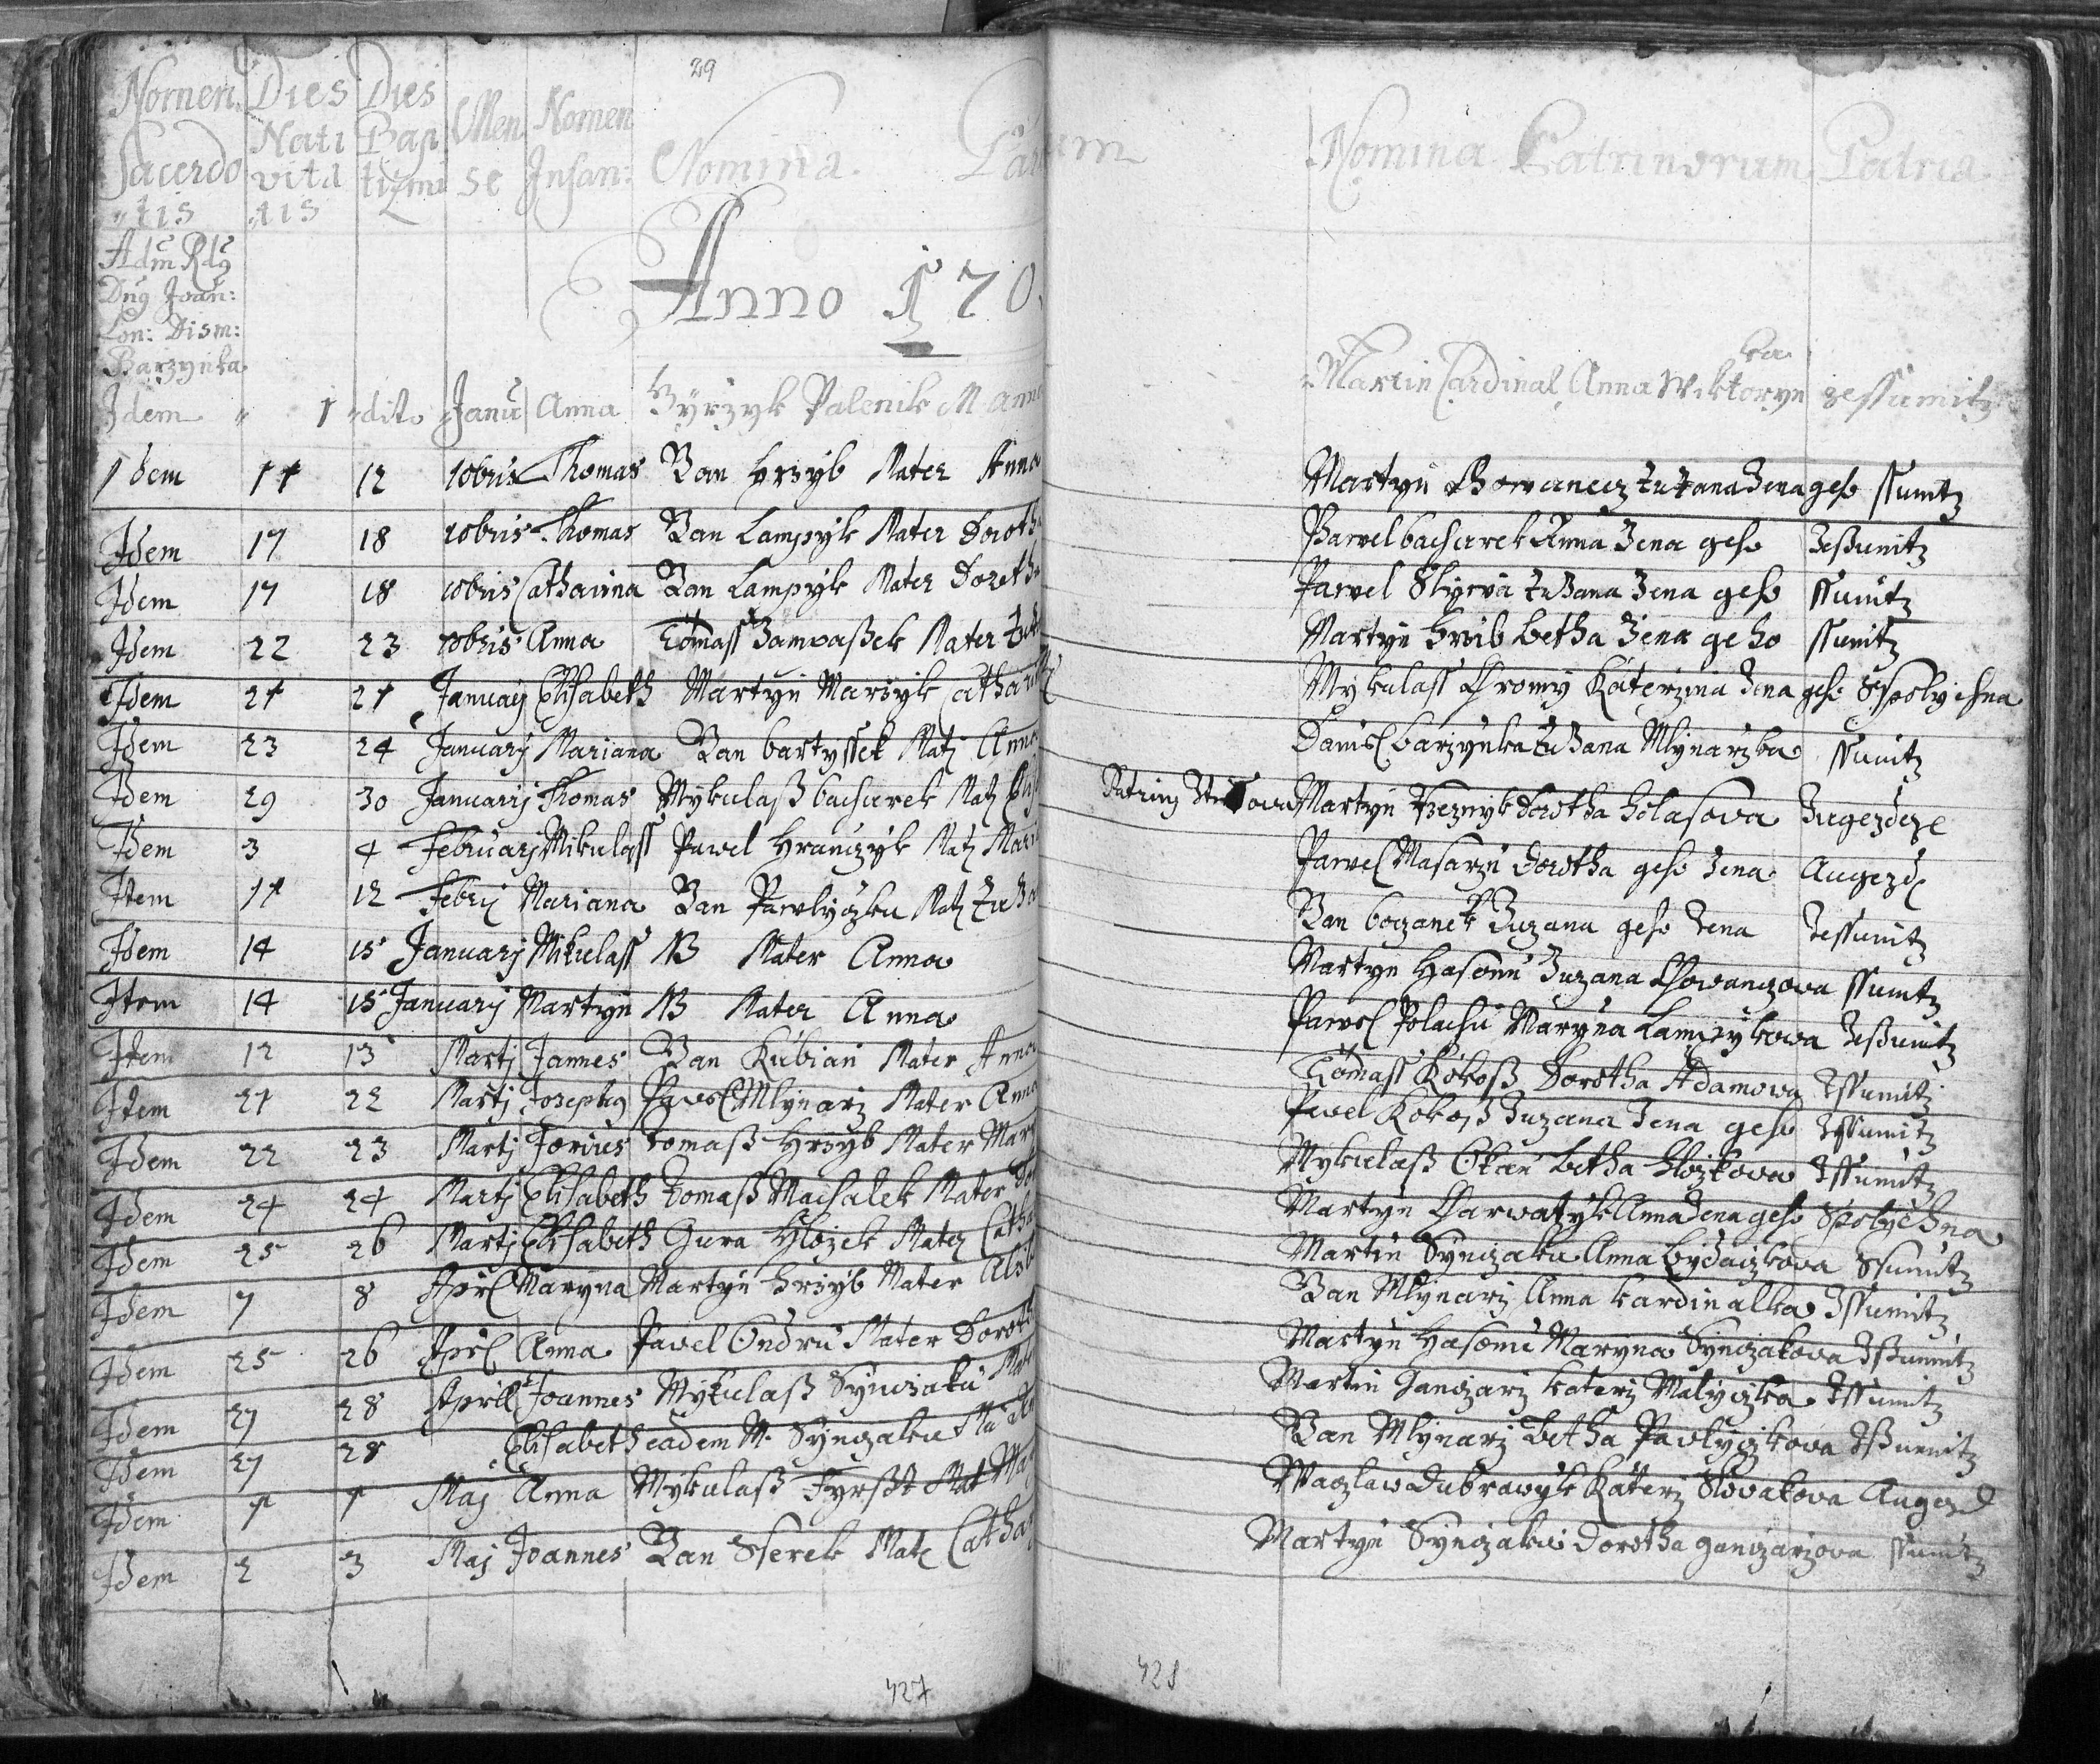 29
Nomen Dies Dies Men Nomen Nomina. Par um Nomina Patrinorum Patria
Sacerdo Nati Bap se Infan:
"tis vita tizmi
"tis
Anno 170
Adm Rdg
Dng Joan:
Lon: Dism:
Barzynka
Idem " 1 "dito Janu Anna Gyrzyk Palenik M Anna Martin Cardinal Anna Wiktoryn ka zessumitz
Idem 11 12 10bris Thomas Jan Hrzyb Mater Anna Martyn Chowanecz Zuzana Zena geho ssumitz
Idem 17 18 10bris Thomas Jan Lampzyk Mater Doroth Pawel bacharek Anna Zena geho Zeßumitz
Idem 17 18 10bris Catharina Jan Lampzyk Mater Doroth Pawel Skyrva Zuzana Zena geho ssumitz
Idem 22 23 10bris Anna Tomass Martyn hrzib betha Zena geho ssumitz
Idem 21 21 January Elisabeth Martyn Marzyk Cathari Mykulass Chromy Katerzina Zena geho
Idem 23 24 January Mariana Jan bartyssek Mat Anna Daniel barzynka Zuzana Mlynarzka ssumitz
Idem 29 30 January Thomas Mykulaß bacharek Mat Martyn Dorotha holasova
Idem 3 4 February Mikulass Pawel Hranczyk Mat Mari Pawel Masarzu Dorotha geho Zena Augezd
Item 11 12 Febry Mariana Jan Pawlyczku Mat Zuza Jan boczanek Zuzana geho Zena Zessumitz
Idem 14 15 January Mikulass NB Mater Anna Martyn Hasonu Zuzana Chowanczova ssumitz
Item 14 15 January Martyn NB Mater Anna Pawel Polachu Maryna Lamczykowa Zeßumitz
Item 12 13 Martj Jannes Jan Kubian Mater Anna Tomass Kokoß Dorotha Adamowa Zssumitz
Item 21 22 Martj Josephg Pawel Mlynarz Mater Anna Pavel Kokoß Zuzana Zena geho Zssumitz
Idem 22 23 Martj Jorius Tomaß Hrzyb Mater Mary Mykulaß betha hlozkova Zssumitz
Idem 24 24 Martj Elisabeth Tomaß Machalek Mater Dor Martyn Charwatzyk Anna Zena geho Spolyehna
Idem 25 26 Martj Elisabeth Gura Hlozek Mater Catha Martin Synczaku Anna Ssumitz
Idem 7 8 Aprl Maryna Martyn hrzyb Mater Alzb Jan Mlynarz Anna kardinalka Zssumitz
Idem 25 26 Aprl Anna Pavel Ondru Mater Doroth Martyn Hasonu Maryna Synczakova Zßumitz
Idem 27 28 Aprill Joannes Mykulaß Synczaku Mat Martin Janczarz katerz Malyczka Zssumitz
Idem 27 28 Elisabeth eadem M. Synczaku Ma Jan Mlynarz betha Pavlyczkova Zßumitz
Idem 1 1 Maj Anna Mykulaß Fyrßt Mat Mar Waczlaw Dubrawyk Katerz Slovakova Augezd
Idem 2 3 Maj Joannes Jan Sserek Mat Cathar Martyn Synczaku Dorotha ganczarzova ssumitz
427 428